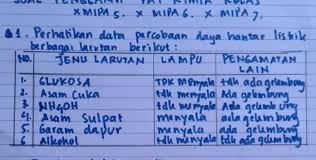 SOAL PENGERTIAN ZAT KIMIA KELAS
X MIPA 5. X MIPA 6. X MIPA 7.
Q1. Perhatikan data percobaan daya hantar listrik
berbagai larutan berikut :
NO. JENIS LARUTAN LAMPU PENGAMATAN LAIN
1. GLUKOSA TDK Menyala tdk ada gelembung
2. Asam Cuka tdk menyala Ada gelembung
3. NH4OH tdk menyala Ada gelembung
4. Asam Sulpat menyala ada gelembung
5. Garam dapur menyala ada gelembung
6 Alkohol tdk menyala tdk ada gelembung